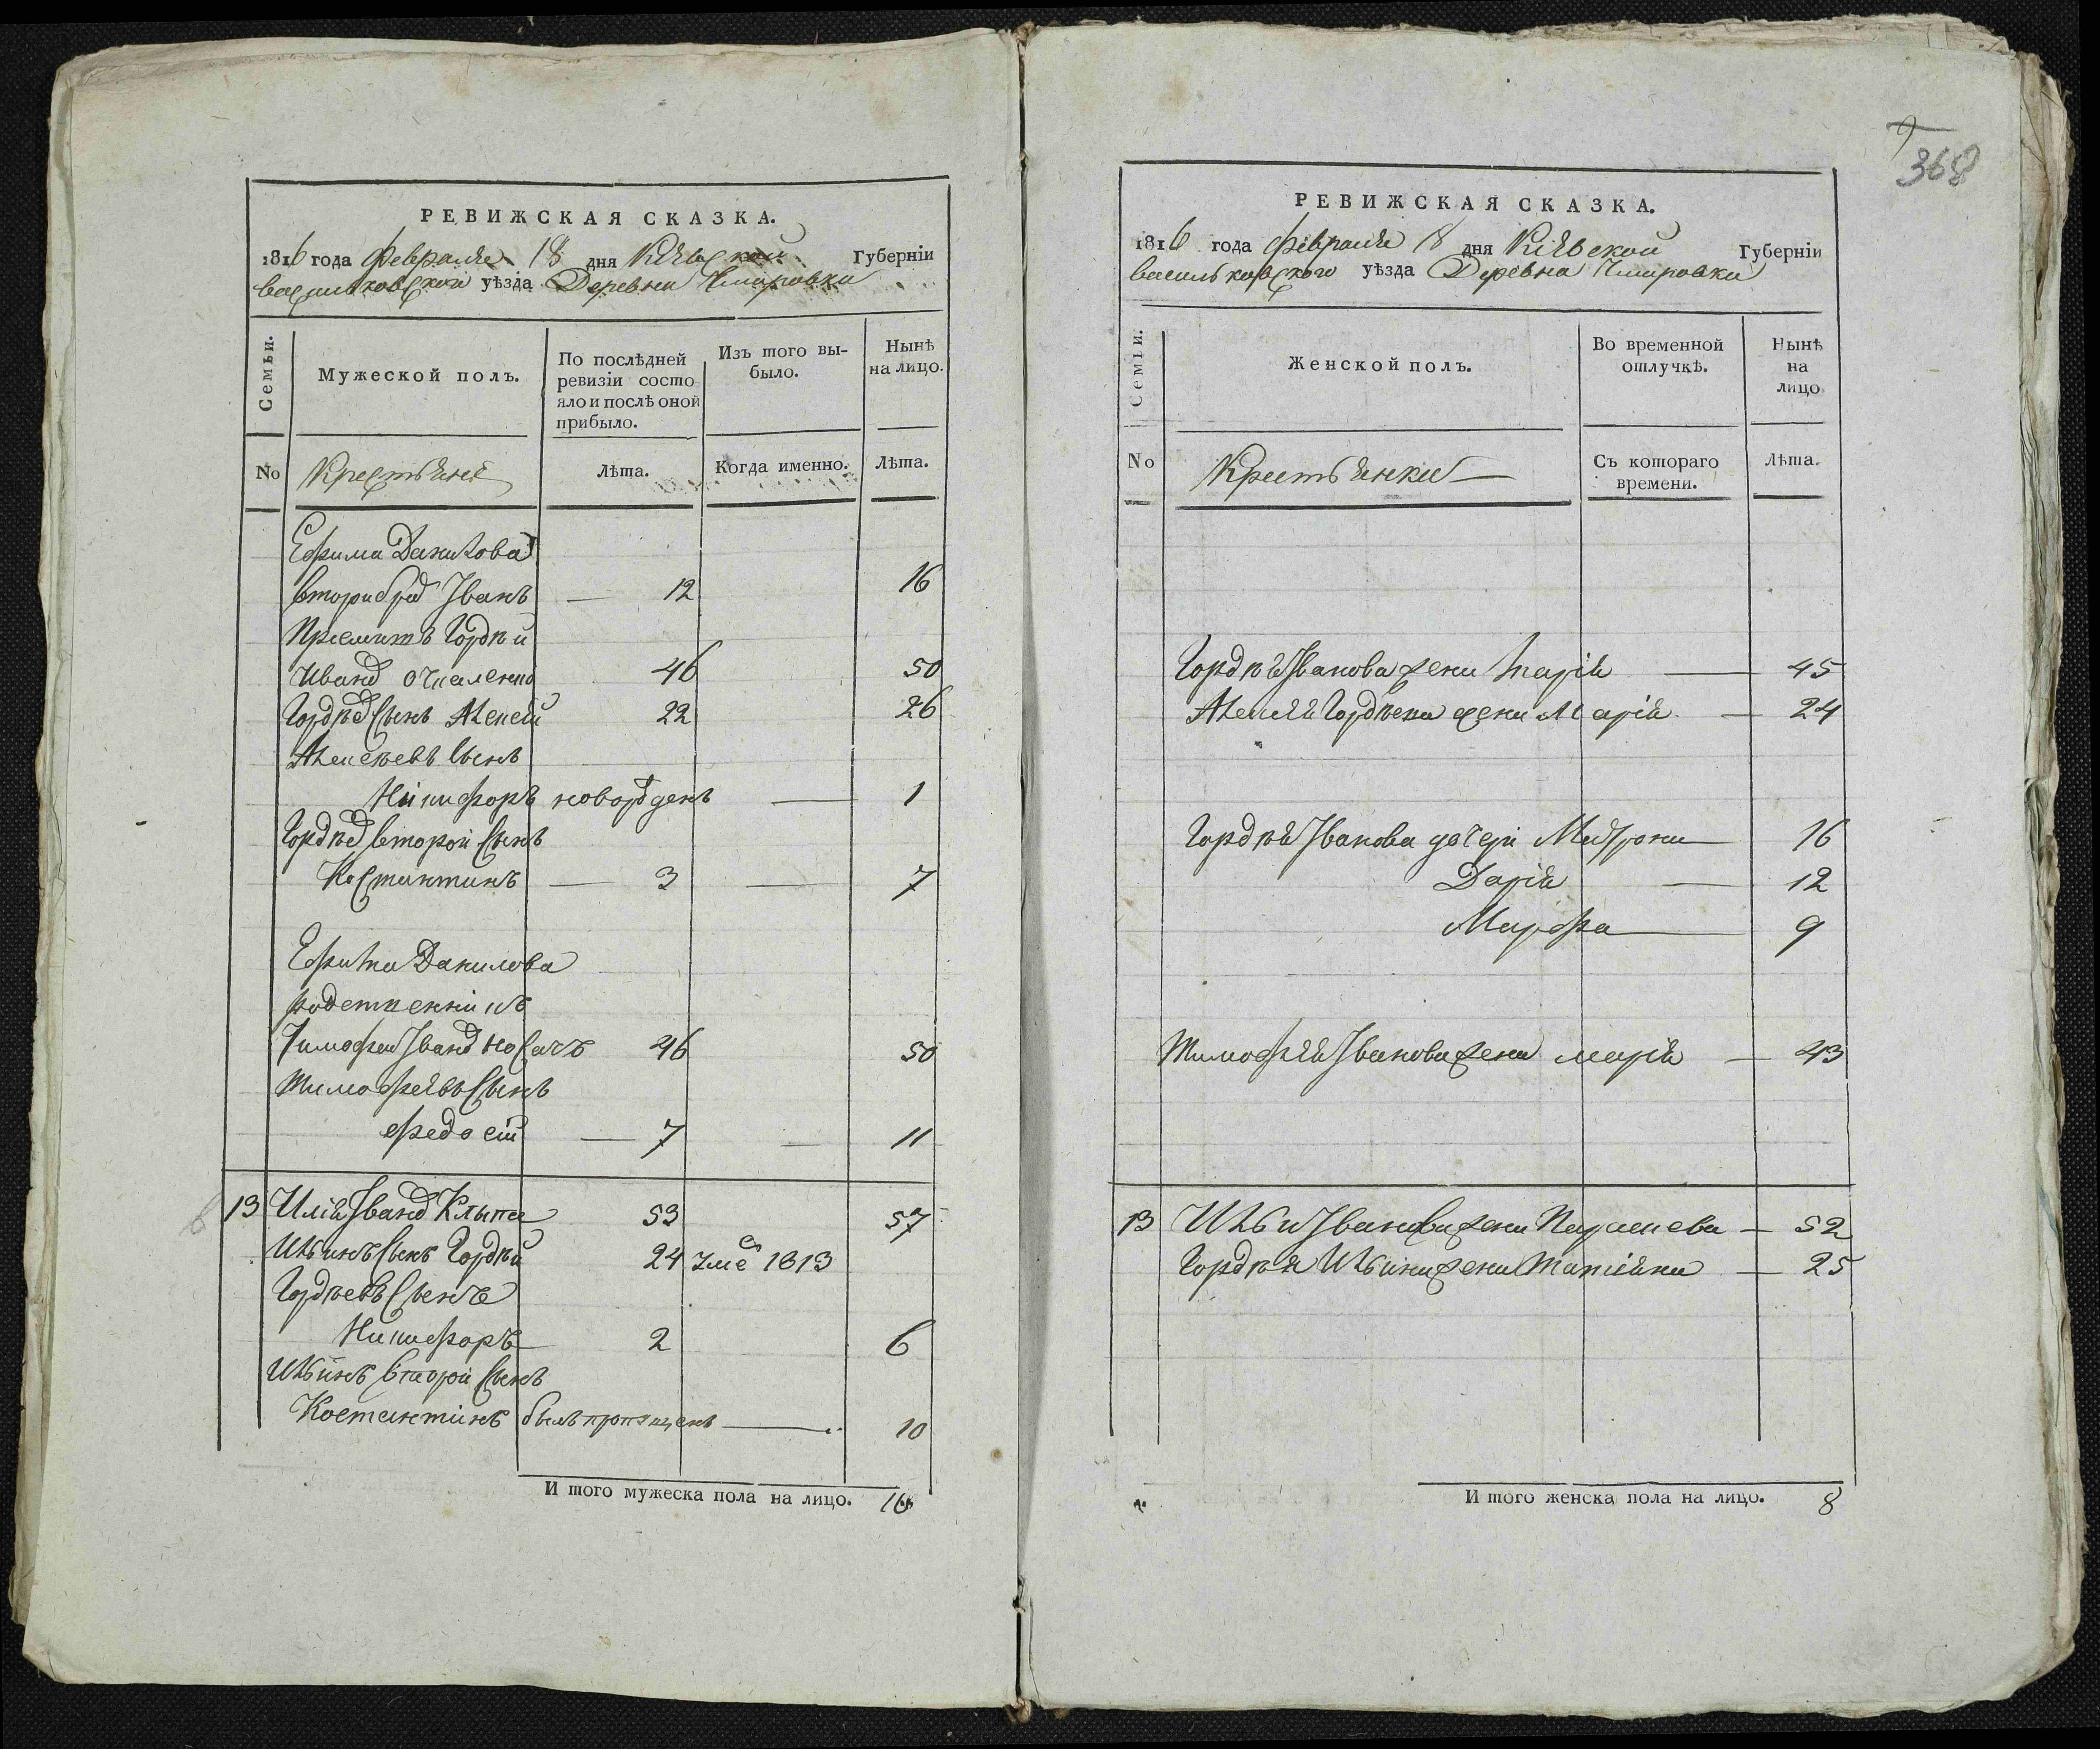 РЕВИЖСКАЯ СКАЗКА.
1816 года Февраля 18 дня Кіевской Губерніи
васильковской уѣзда Деревни
Семьи.
Мужеской полъ.
По послѣдней ревизіи состояло и послѣ оной прибыло.
Изъ того выбыло.
Нынѣ на лицо.
No
Крестьяне
Лѣта.
Когда именно.
Лѣта.
Ефима Данилова
втори брад Іванъ — 12 16
Приемитъ Гордѣй
Иванд 46 50
Гордѣд Сынъ Алексй 22 26
Алексѣевъ Сынъ
Никифоръ новорджденъ — 1
Гордѣд второй Сынъ
Костантинъ — 3 — 7
Ефима Данилова
родственнікъ
Тимофеи Іванд Носачъ 46 50
Тимофеявъ Сынъ
Федосій — 7 — 11
13 Илія Іванд Клыпа 53 57
Ильинъ Сынъ Гордѣй 24 1813
Гордѣевъ Сынъ
Никифоръ 2 6
Ильинъ второй Сынъ
Костантінъ былъ пропущенъ — 10
И того мужеска пола на лицо. 10
368
РЕВИЖСКАЯ СКАЗКА.
1816 года Февраля 18 дня Кіевской Губерніи
васильковского уѣзда Деревна
Семьи.
Женской полъ.
Во временной отлучкѣ.
Нынѣ на лицо
No
Крестьянки
Съ котораго времени.
Лѣта.
Гордѣя Іванова жена Марія — 45
Алексѣя Гордѣева жена Марія — 24
Гордѣя Іванова дочери Мотрона — 16
Дарія — 12
Марфа — 9
Тимофѣя Іванова жена марія — 43
13 Ильи Іванова жена Параскева — 52
Гордѣя Ильина жена Татіяна — 25
И того женска пола на лицо. 8